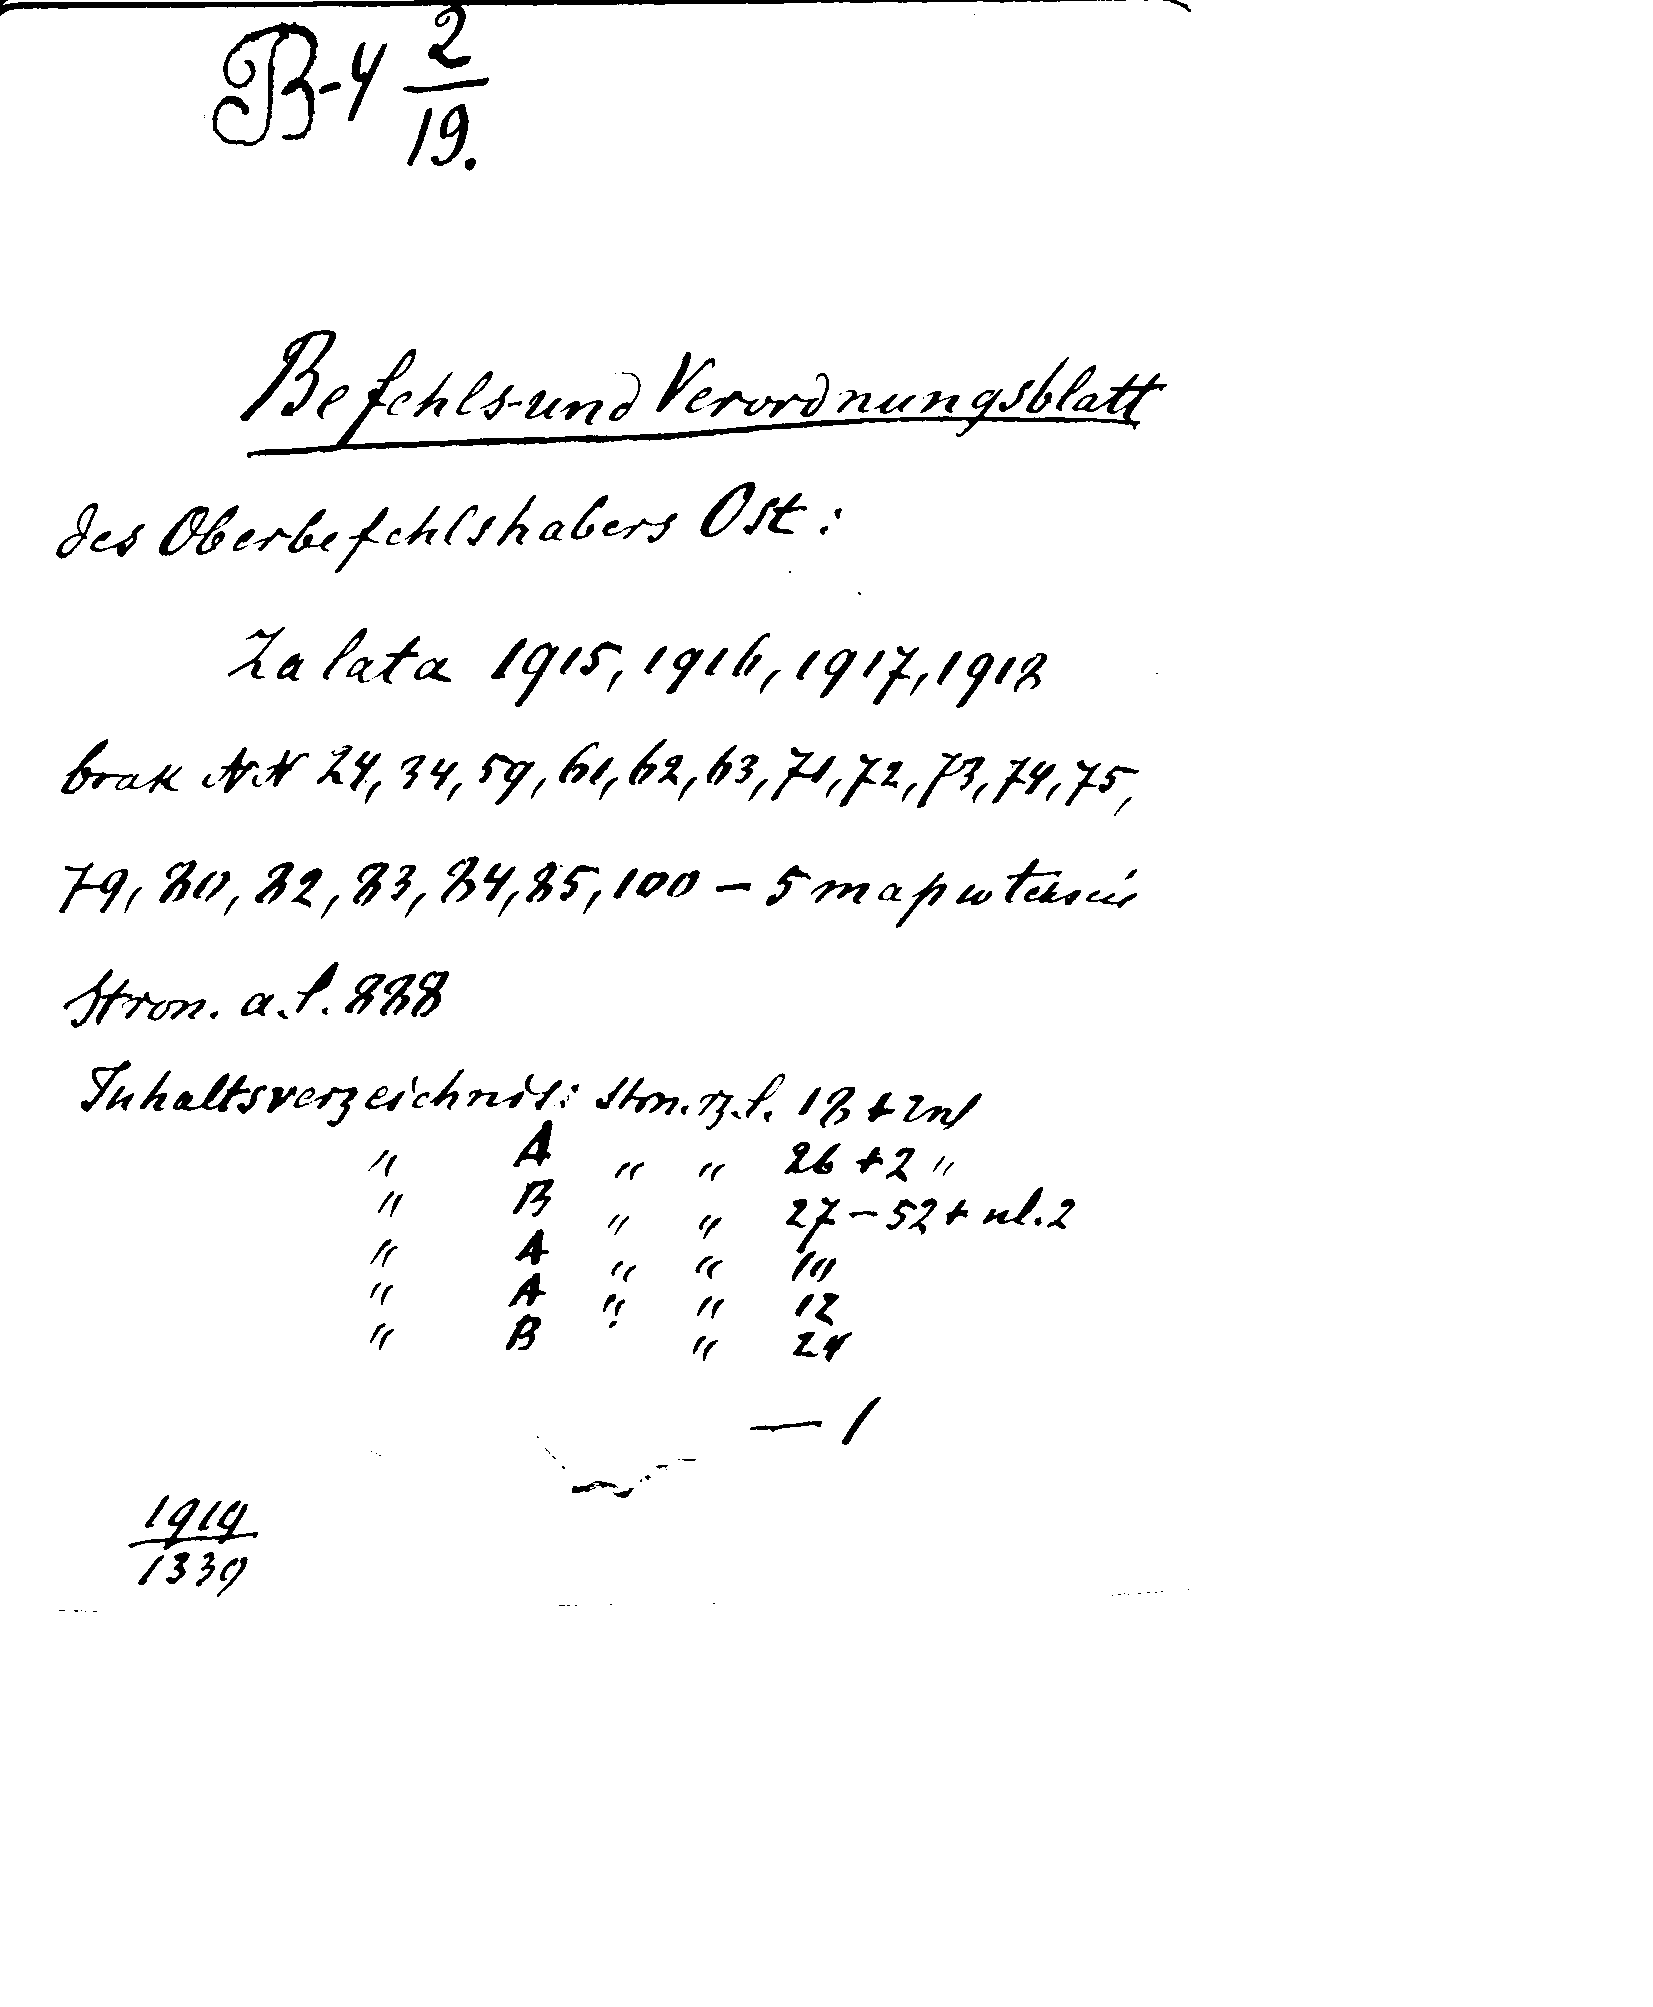 B-4 2/19.
Befehls-und Verordnungsblatt
des Oberbefehlshabers Ost:
Za lata 1915, 1916, 1917, 1918
brak NN 24, 34, 59, 61, 62, 63, 71, 72, 73, 74, 75,
79, 80, 82, 83, 84, 85, 100 – 5 map w tekscie
Stron. a.l. 888
Inhaltsverzeichnis: stron. rz.l. 18 + 2nl
" A " " 26 + 2 "
" B " " 27 – 52 + nl. 2
" A " " 10
" A " " 12
" B " 24
— 1
1919
1339